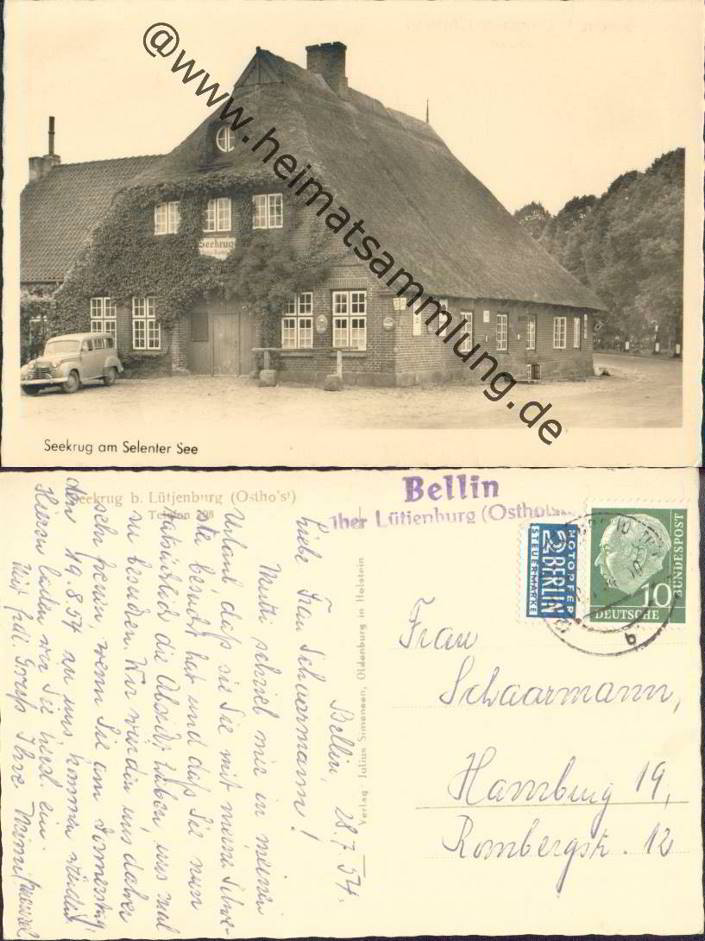 @www.heimatsammlung.de
Seekrug
Seekrug am Selenter See
Seekrug b. Lütjenburg (Ostholst)
Telefon 298
Bellin
über Lütjenburg (Ostholst
NOTOPFER
2 BERLIN
STEUERMARKE
10
DEUTSCHE
BUNDESPOST
b
Verlag: Julius Simonsen, Oldenburg in Holstein
Bellin, 28.7.54.
Liebe Frau Schaarmann!
Mutti schrieb mir in meinen
Urlaub, daß sie Sie mit meiner Schwe-
ster besucht hat und daß Sie nun
natürlich die Absicht haben uns mal
zu besuchen. Wir würden uns daher
sehr freuen, wenn Sie am Donnerstag,
den 19.8.54 zu uns kommen würden.
Hierzu laden wir Sie herzl. ein.
Mit frdl. Gruß Ihre
Frau
Schaarmann,
Hamburg 19,
Rombergstr. 12